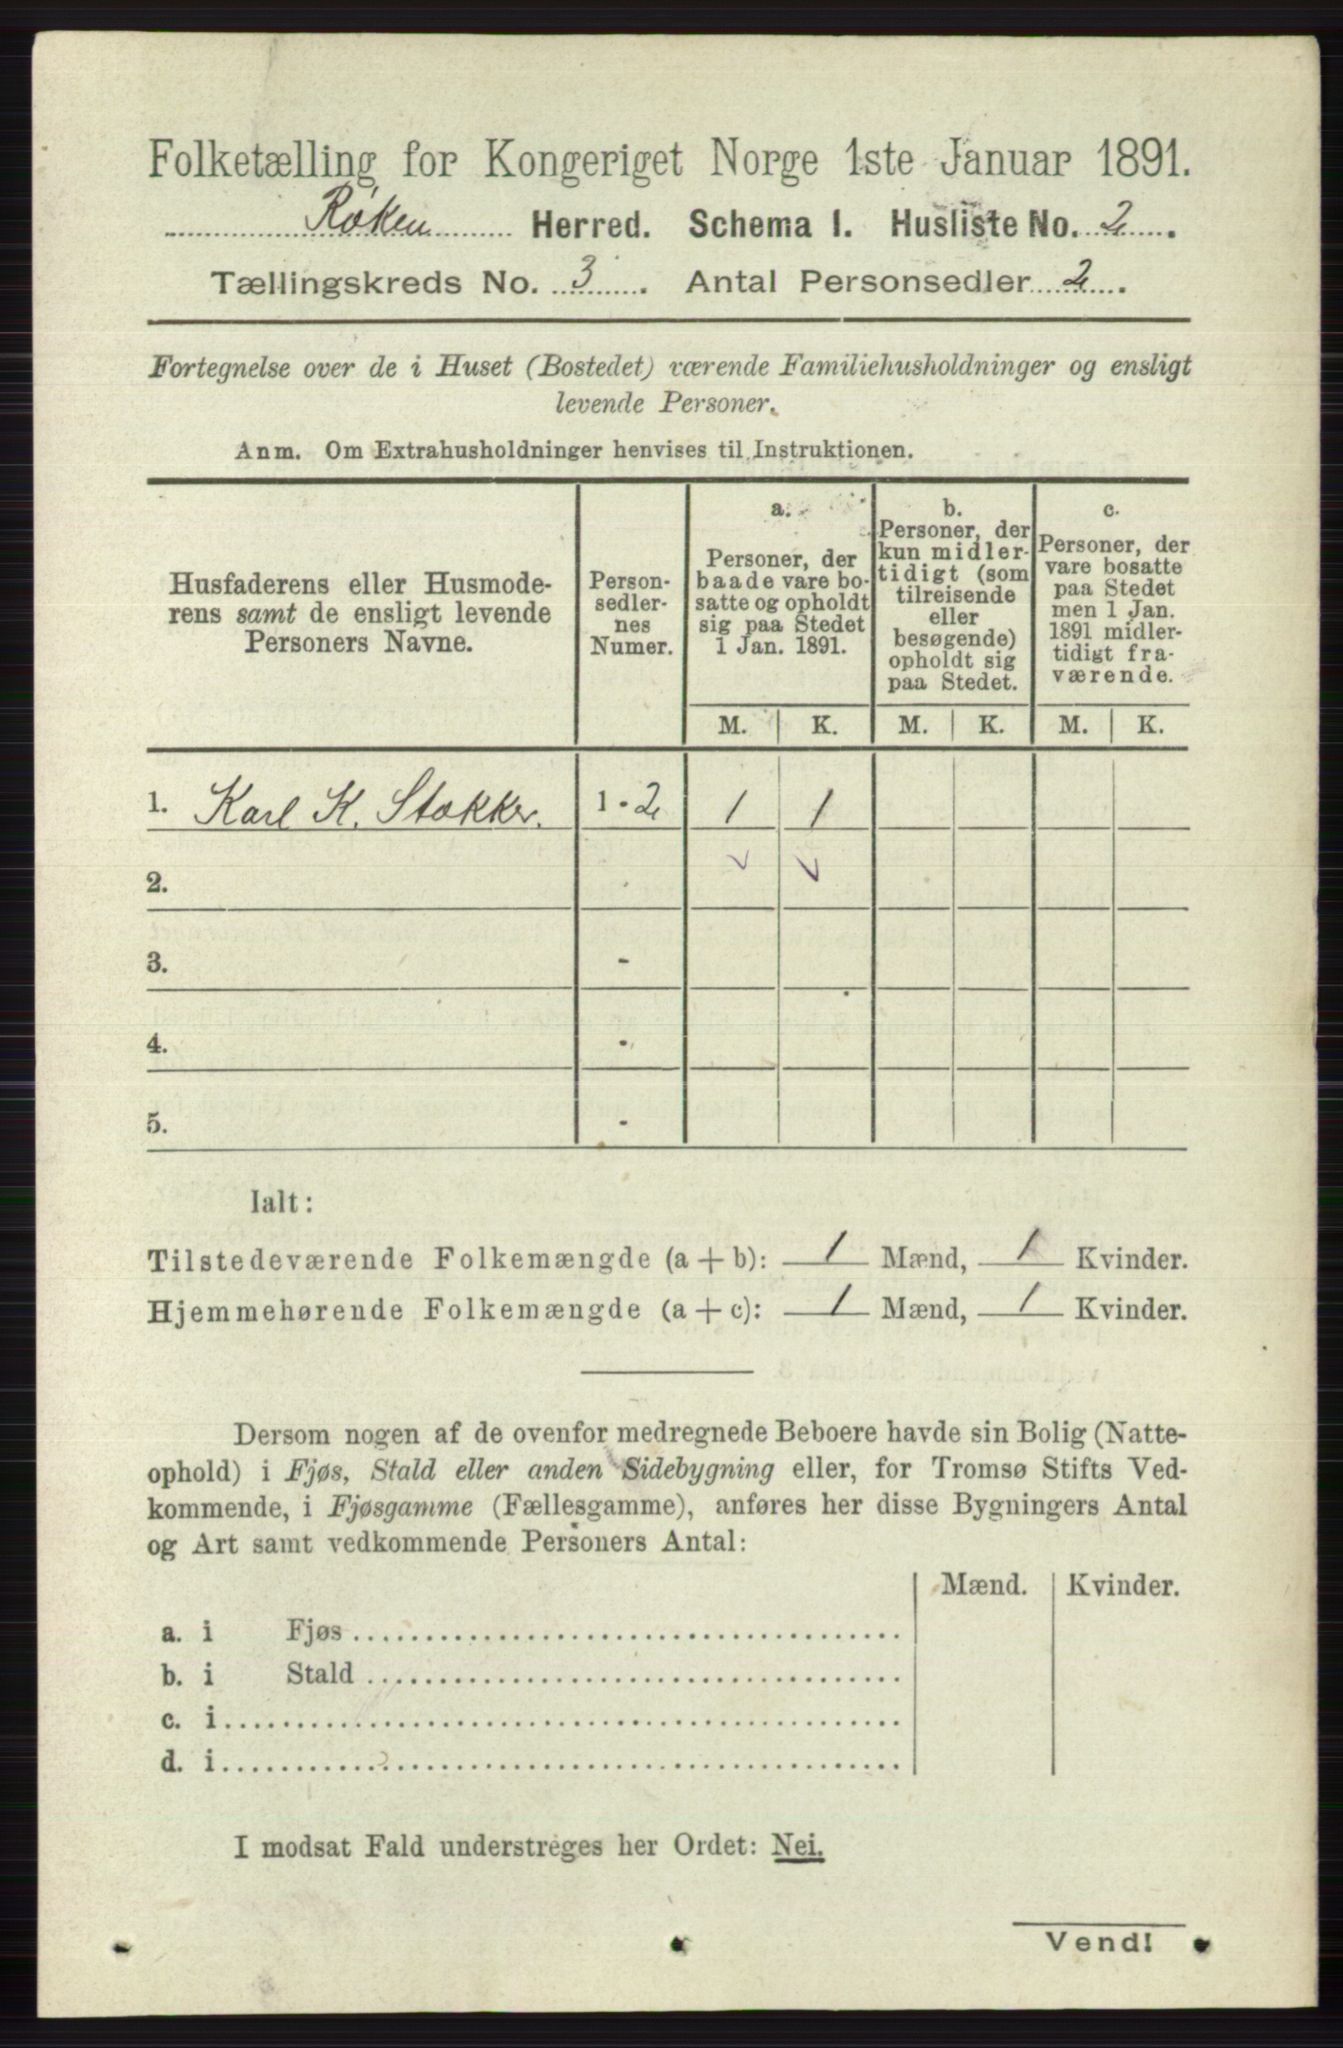 Folketælling for Kongeriget Norge 1ste Januar 1891.
Røken Herred. Schema I. Husliste No. 2.
Tællingskreds No. 3. Antal Personsedler 2.
Fortegnelse over de i Huset (Bostedet) værende Familiehusholdninger og ensligt
levende Personer.
Anm. Om Extrahusholdninger henvises til Instruktionen.
Husfaderens eller Husmode-
rens samt de ensligt levende
Personers Navne.
Person-
sedler-
nes
Numer.
a.
Personer, der
baade vare bo-
satte og opholdt
sig paa Stedet
1 Jan. 1891.
b.
Personer, der
kun midler-
tidigt (som
tilreisende
eller
besøgende)
opholdt sig
paa Stedet.
c.
Personer, der
vare bosatte
paa Stedet
men 1 Jan.
1891 midler-
tidigt fra-
værende.
M. K. M. K. M. K.
1. Karl K. Stokker. 1 - 2 1 1
2.
3. -
4. -
5. -
Ialt:
Tilstedeværende Folkemængde (a + b): 1 Mænd, 1 Kvinder.
Hjemmehørende Folkemængde (a + c): 1 Mænd, 1 Kvinder.
Dersom nogen af de ovenfor medregnede Beboere havde sin Bolig (Natte-
ophold) i Fjøs, Stald eller anden Sidebygning eller, for Tromsø Stifts Ved-
kommende, i Fjøsgamme (Fællesgamme), anføres her disse Bygningers Antal
og Art samt vedkommende Personers Antal:
Mænd. Kvinder.
a. i Fjøs
b. i Stald
c. i
d. i
I modsat Fald understreges her Ordet: Nei.
Vend!